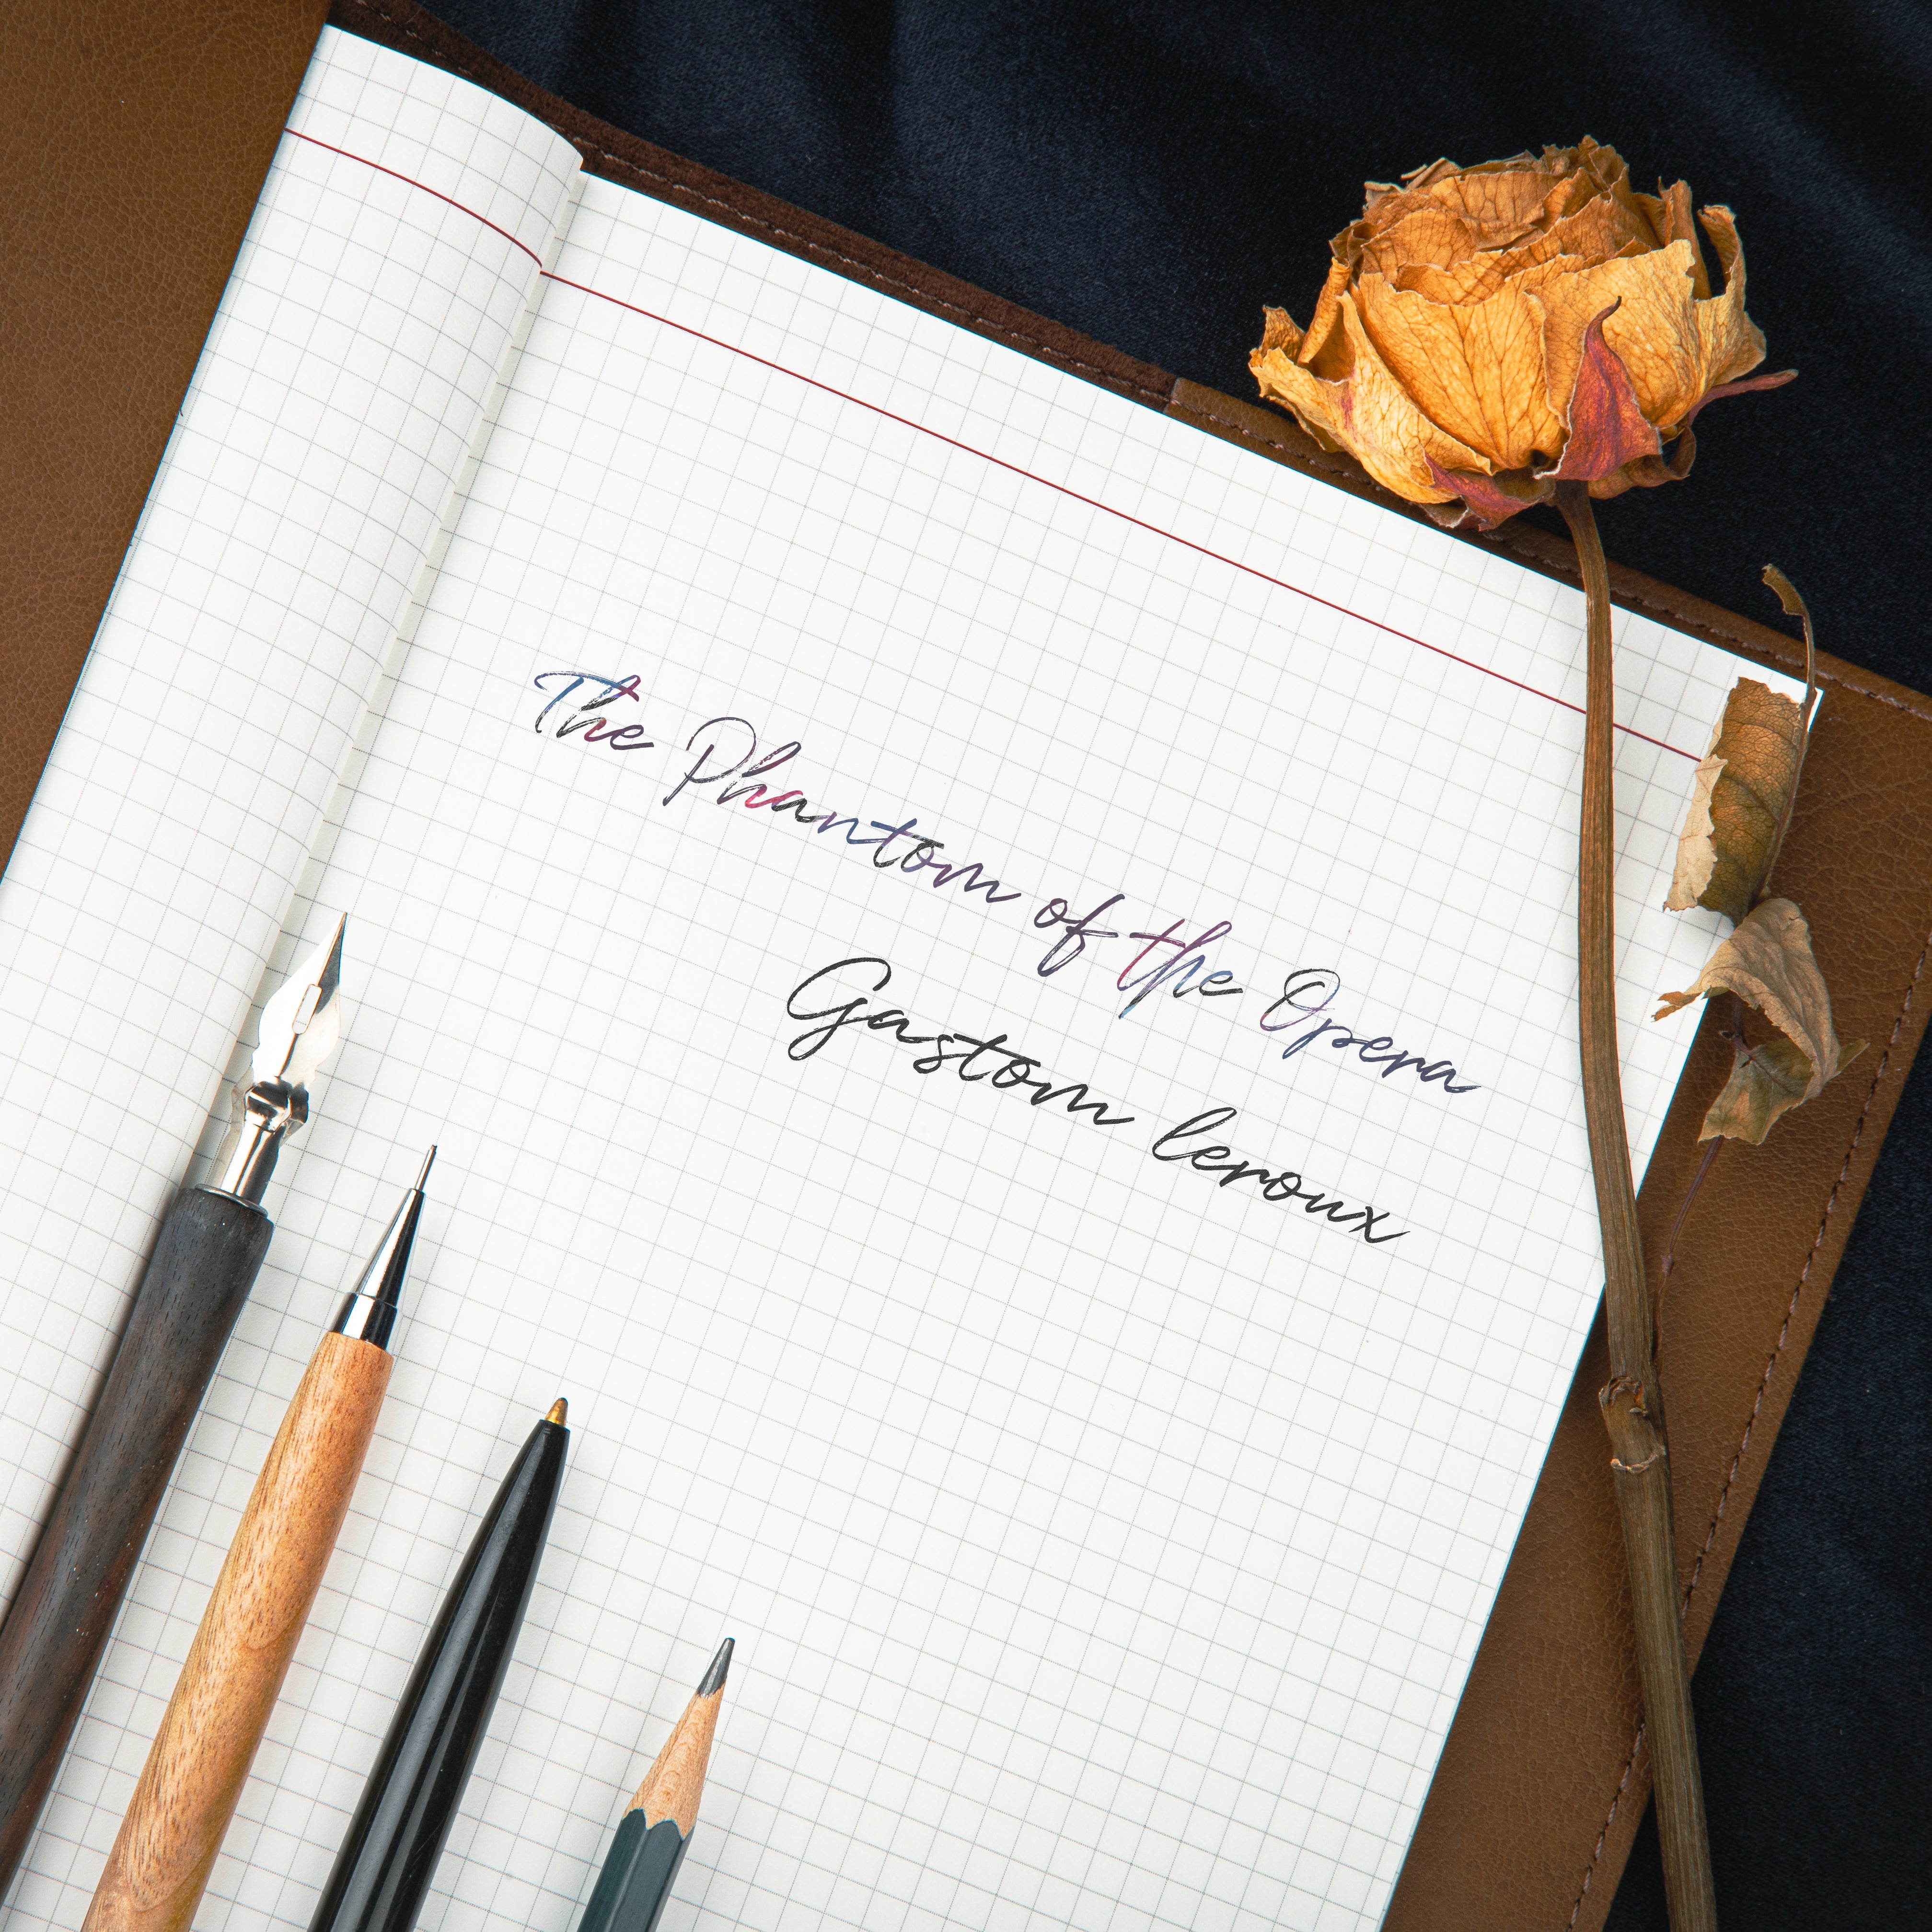 The Phantom of the Opera
Gastom leroux